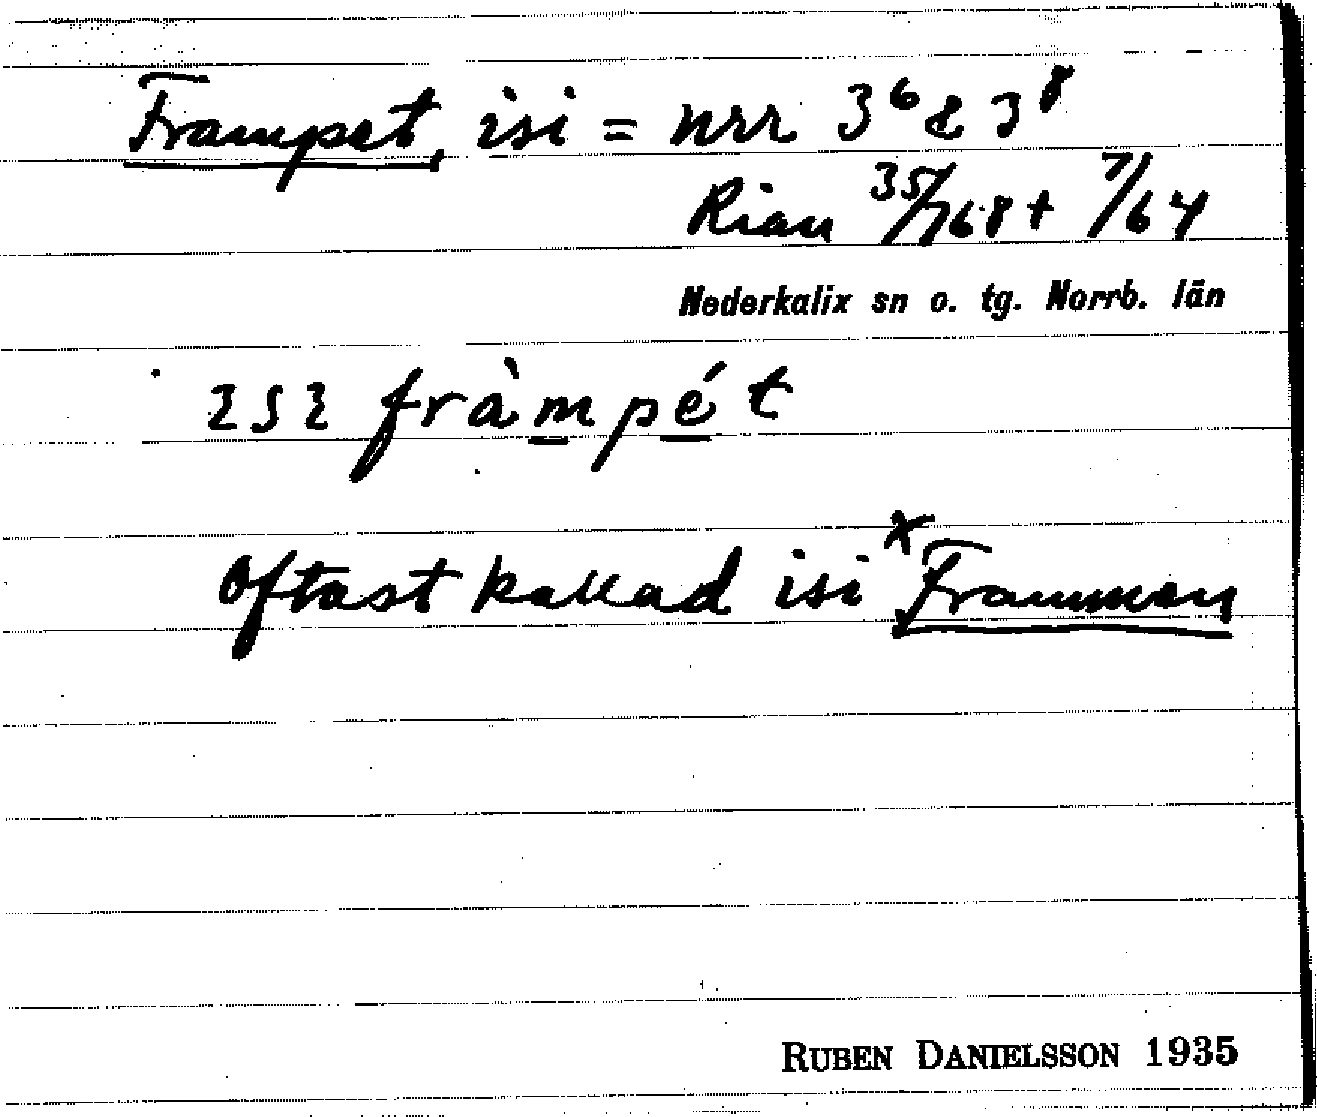 Frampet, isi = nrr 3⁶ & 3⁸
Rian 35/768 + 7/64
Nederkalix sn o. tg. Norrb. län
252 fràmpét
Oftast kallad isi ˣFramman
RUBEN DANIELSSON 1935